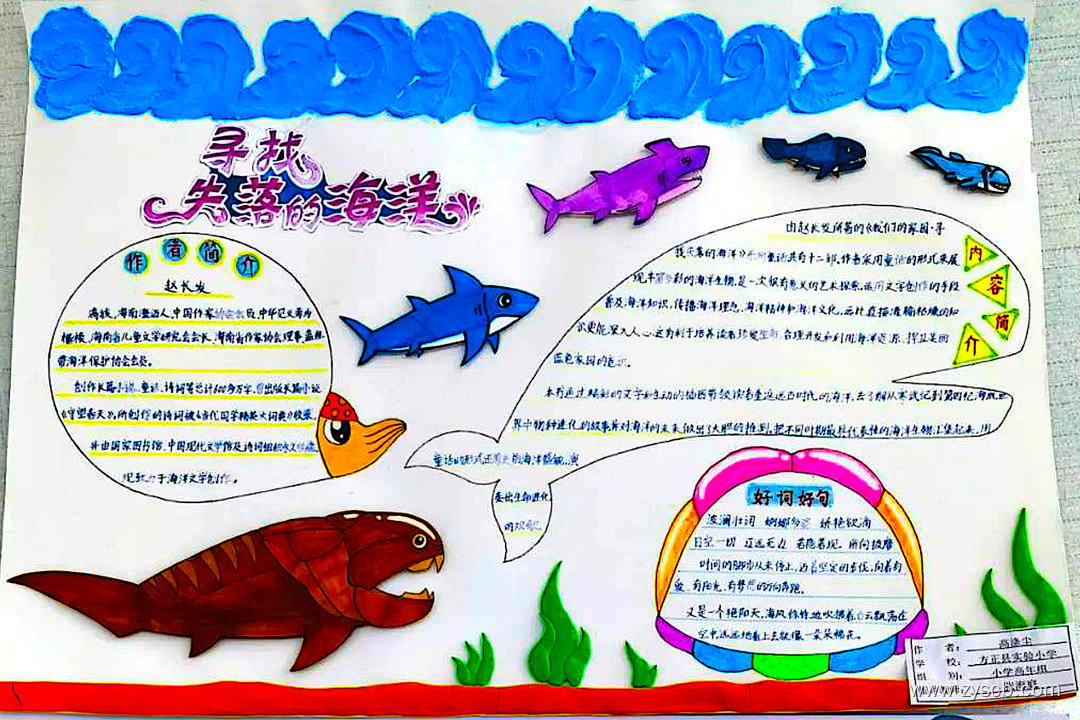 寻找
失落的海洋
作者简介
赵长发
满族,海南澄迈人,中国作家协会会员,中华见义勇为
楷模、海南省儿童文学研究会会长,海南省作家协会理事,蓝丝
带海洋保护协会会员。
创作长篇小说、童话、诗词等总计600多万字,曾出版长篇小说
《守望春天》,所创作的诗词被《当代国学精英大词典》收录,
并由国家图书馆、中国现代文学馆及诗词组织永久收藏,
现致力于海洋文学创作。
内容简介
由赵长发所著的《我们的家园·寻
找失落的海洋》系列童话共有十二部,作者采用童话的形式来展
现丰富多彩的海洋生物,是一次极有意义的艺术探索,运用文学创作的手段
普及海洋知识,传播海洋理念、海洋精神和海洋文化,远比直接灌输枯燥的知
识更能深入人心,这有利于培养读者珍爱生命、合理开发和利用海洋资源、捍卫美丽
蓝色家园的意识。
本书通过精彩的文字和生动的插画带领读者重返远古时代的海洋,去了解从寒武纪到第四纪海底世
界中物种进化的故事,并对海洋的未来做出了大胆的推测,把不同时期最具代表性的海洋生物汇集起来,用
童话的形式还原史前海洋盛貌,演
奏出生命进化
的欢歌。
好词好句
波澜壮阔 婀娜多姿 娇艳欲滴
目空一切 辽远无边 若隐若现 所向披靡
时间的脚步从未停止,迈着坚定的步伐,向着有
爱、有阳光、有梦想的方向奔跑。
又是一个艳阳天,海风悄悄地吹拂着,白云飘荡在
空中,远远地看上去就像一朵朵棉花。
作 者:高涤尘
学 校:方正县实验小学
组 别:小学高年组
www.zyseb.com